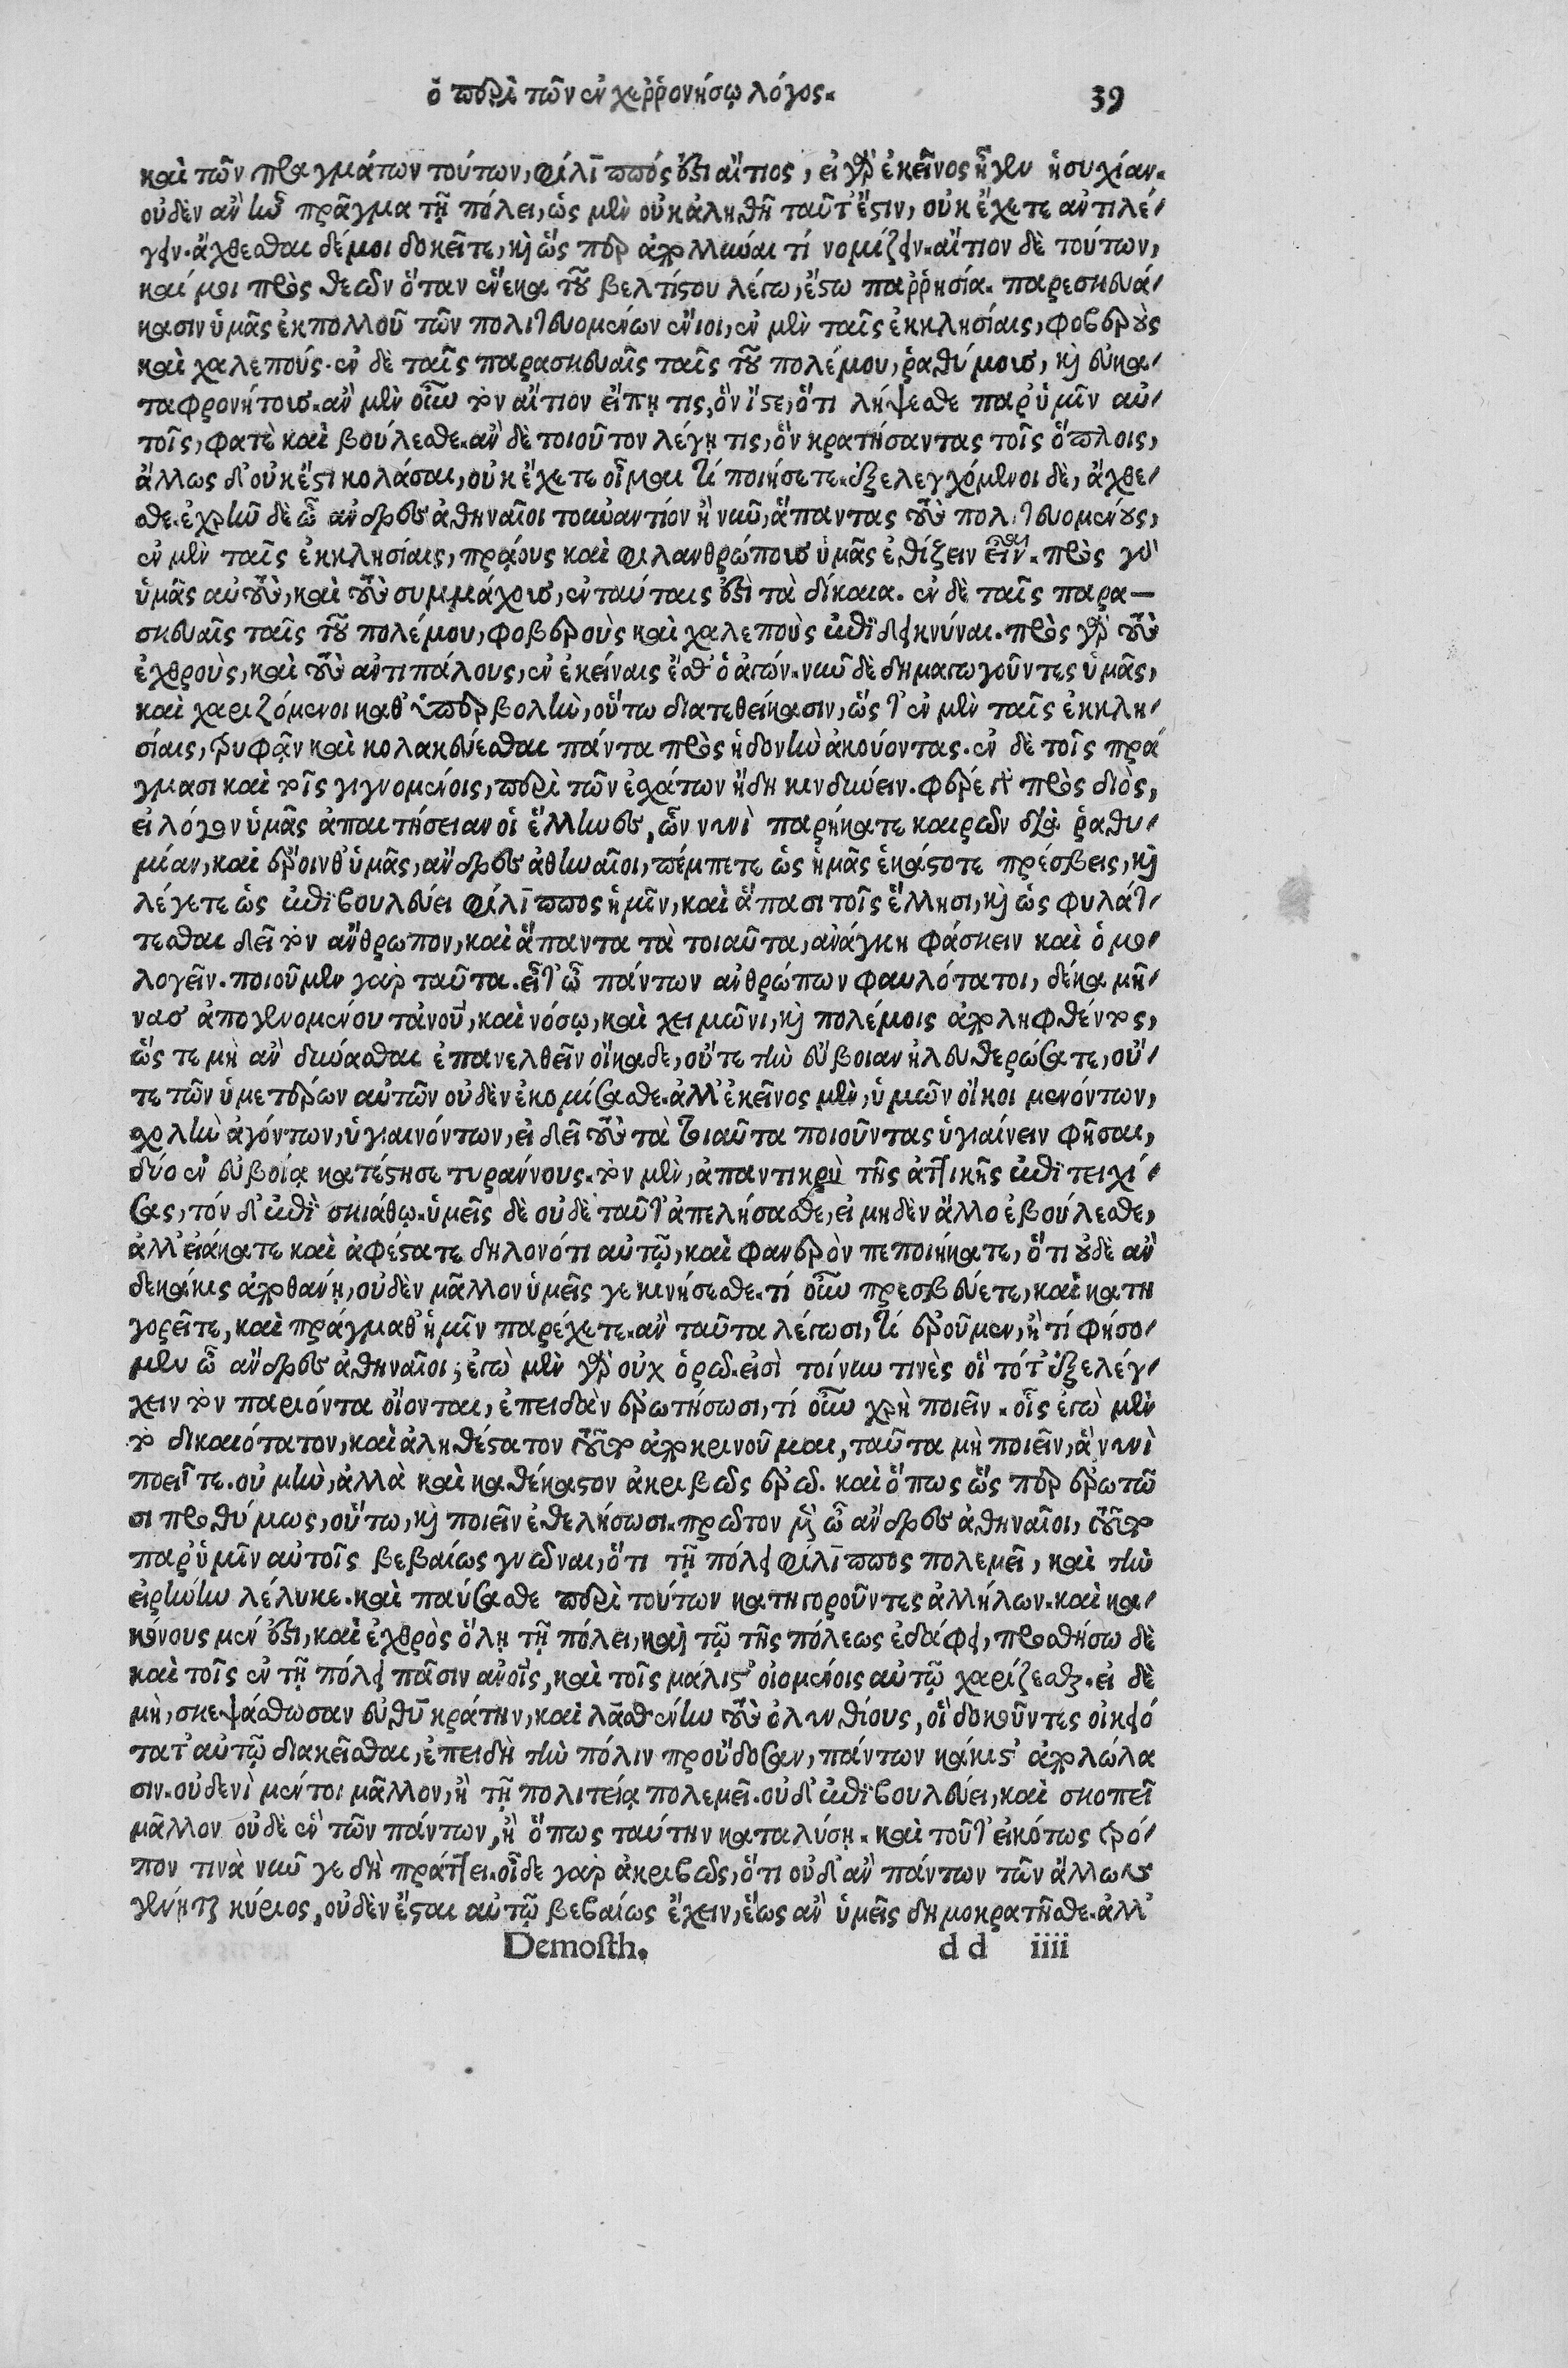 ὁ περὶ τῶν ἐν χερῤονήσῳ λόγος. 39
καὶ τῶν πραγμάτων τούτων, φίλιππός ἐστι αἴτιος, εἰ γὰρ ἐκεῖνος ἦγεν ἡσυχίαν.
οὐδὲν ἂν ἦν πρᾶγμα τῇ πόλει, ὡς μὲν οὐκ ἀληθῆ ταῦτ' ἔστιν, οὐκ ἔχετε ἀντιλέ-
γειν. ἄχθεσθαι δέ μοι δοκεῖτε, καὶ ὥς περ ἀπολλύναι τί νομίζειν. αἴτιον δὲ τούτων,
καί μοι πρὸς θεῶν ὅταν ἕνεκα τοῦ βελτίστου λέγω, ἔστω παῤῥησία. παρεσκευά-
κασιν ὑμᾶς ἐκ πολλοῦ τῶν πολιτευομένων ἔνιοι, ἐν μὲν ταῖς ἐκκλησίαις, φοβεροὺς
καὶ χαλεπούς. ἐν δὲ ταῖς παρασκευαῖς ταῖς τοῦ πολέμου, ῥαθύμους, καὶ εὐκα-
ταφρονήτους. ἂν μὲν οὖν τὸν αἴτιον εἴπῃ τις, ὃν ἴστε, ὅτι λήψεσθε παρ' ὑμῖν αὐ-
τοῖς, φατὲ καὶ βούλεσθε. ἂν δὲ τοιοῦτον λέγῃ τις, ὃν κρατήσαντας τοῖς ὅπλοις,
ἄλλως δ' οὐκ ἔστι κολάσαι, οὐκ ἔχετε οἶμαι τί ποιήσετε. ἐξελεγχόμενοι δὲ, ἄχθε-
σθε. ἐχρῆν δὲ ὦ ἄνδρες ἀθηναῖοι τοὐναντίον ἢ νῦν, ἅπαντας τοὺς πολιτευομένους,
ἐν μὲν ταῖς ἐκκλησίαις, πράους καὶ φιλανθρώπους ὑμᾶς ἐθίζειν εἶναι. πρὸς γὰρ
ὑμᾶς αὐτοὺς, καὶ τοὺς συμμάχους, ἐν ταύταις ἐστὶ τὰ δίκαια. ἐν δὲ ταῖς παρα-
σκευαῖς ταῖς τοῦ πολέμου, φοβεροὺς καὶ χαλεποὺς ἐπιδεικνύναι. πρὸς γὰρ τοὺς
ἐχθροὺς, καὶ τοὺς ἀντιπάλους, ἐν ἐκείναις ἔσθ' ὁ ἀγών. νῦν δὲ δημαγωγοῦντες ὑμᾶς,
καὶ χαριζόμενοι καθ' ὑπερβολὴν, οὕτω διατεθείκασιν, ὥστ' ἐν μὲν ταῖς ἐκκλη-
σίαις, τρυφᾷν καὶ κολακεύεσθαι πάντα πρὸς ἡδονὴν ἀκούοντας. ἐν δὲ τοῖς πρά
γμασι καὶ τοῖς γιγνομένοις, περὶ τῶν ἐσχάτων ἤδη κινδυνεύειν. φέρε γὰρ πρὸς διὸς,
εἰ λόγον ὑμᾶς ἀπαιτήσειαν οἱ ἕλληνες, ὧν νυνὶ παρήκατε καιρῶν διὰ ῥαθυ-
μίαν, καὶ ἔροινθ' ὑμᾶς, ἄνδρες ἀθηναῖοι, πέμπετε ὡς ἡμᾶς ἑκάστοτε πρέσβεις, καὶ
λέγετε ὡς ἐπιβουλεύει φίλιππος ἡμῖν, καὶ ἅπασι τοῖς ἕλλησι, καὶ ὡς φυλάτ-
τεσθαι δεῖ τὸν ἄνθρωπον, καὶ ἅπαντα τὰ τοιαῦτα, ἀνάγκη φάσκειν καὶ ὁμο-
λογεῖν. ποιοῦμεν γὰρ ταῦτα. εἶτ' ὦ πάντων ἀνθρώπων φαυλότατοι, δέκα μῆ-
νας ἀπογενομένου τἀνθρώπου, καὶ νόσῳ, καὶ χειμῶνι, καὶ πολέμοις ἀποληφθέντος,
ὥς τε μὴ ἂν δύνασθαι ἐπανελθεῖν οἴκαδε, οὔτε τὴν εὔβοιαν ἠλευθερώσατε, οὔ-
τε τῶν ὑμετέρων αὐτῶν οὐδὲν ἐκομίσασθε. ἀλλ' ἐκεῖνος μὲν, ὑμῶν οἴκοι μενόντων,
σχολὴν ἀγόντων, ὑγιαινόντων, εἰ δεῖ τοὺς τὰ τοιαῦτα ποιοῦντας ὑγιαίνειν φῆσαι,
δύο ἐν εὐβοίᾳ κατέστησε τυράννους. τὸν μὲν, ἀπαντικρὺ τῆς ἀττικῆς ἐπιτειχί-
σας, τόν δ' ἐπὶ σκιάθῳ. ὑμεῖς δὲ οὐδὲ ταῦτ' ἀπελύσασθε, εἰ μηδὲν ἄλλο ἐβούλεσθε,
ἀλλ' εἰάκατε καὶ ἀφέστατε δηλονότι αὐτῷ, καὶ φανερὸν πεποιήκατε, ὅτι οὐδὲ ἂν
δεκάκις ἀποθάνῃ, οὐδὲν μᾶλλον ὑμεῖς γε κινήσεσθε. τί οὖν πρεσβεύετε, καὶ κατη
γορεῖτε, καὶ πράγμαθ' ἡμῖν παρέχετε. ἂν ταῦτα λέγωσι, τί ἐροῦμεν, ἢ τί φήσο-
μεν ὦ ἄνδρες ἀθηναῖοι; ἐγὼ μὲν γὰρ οὐχ ὁρῶ. εἰσὶ τοίνυν τινὲς οἳ τότ' ἐξελέγ-
χειν τὸν παριόντα οἴονται, ἐπειδὰν ἐρωτήσωσι, τί οὖν χρὴ ποιεῖν. οἷς ἐγὼ μὲν
τὸ δικαιότατον, καὶ ἀληθέστατον τοῦτο ἀποκρινοῦμαι, ταῦτα μὴ ποιεῖν, ἃ νυνὶ
ποιεῖτε. οὐ μὴν, ἀλλὰ καὶ καθέκαστον ἀκριβῶς ἐρῶ. καὶ ὅπως ὥς περ ἐρωτῶ
σι προθύμως, οὕτω, καὶ ποιεῖν ἐθελήσωσι. πρῶτον μὲν ὦ ἄνδρες ἀθηναῖοι, τοῦτο
παρ' ὑμῖν αὐτοῖς βεβαίως γνῶναι, ὅτι τῇ πόλει φίλιππος πολεμεῖ, καὶ τὴν
εἰρήνην λέλυκε. καὶ παύσασθε περὶ τούτων κατηγοροῦντες ἀλλήλων. καὶ κα-
κόνους μέν ἐστι, καὶ ἐχθρὸς ὅλῃ τῇ πόλει, καὶ τῷ τῆς πόλεως ἐδάφει, προσθήσω δὲ
καὶ τοῖς ἐν τῇ πόλει πᾶσιν ἀνθρώποις, καὶ τοῖς μάλιστ' οἰομένοις αὐτῷ χαρίζεσθαι. εἰ δὲ
μὴ, σκεψάσθωσαν εὐθυκράτην, καὶ λασθένην τοὺς ὀλυνθίους, οἳ δοκοῦντες οἰκειό
τατ' αὐτῷ διακεῖσθαι, ἐπειδὴ τὴν πόλιν προὔδοσαν, πάντων κάκιστ' ἀπολώλα
σιν. οὐδενὶ μέντοι μᾶλλον, ἢ τῇ πολιτείᾳ πολεμεῖ. οὐδ' ἐπιβουλεύει, καὶ σκοπεῖ
μᾶλλον οὐδὲ ἓν τῶν πάντων, ἢ ὅπως ταύτην καταλύσῃ. καὶ τοῦτ' εἰκότως τρό-
πον τινὰ νῦν γε δὴ πράττει. οἶδε γὰρ ἀκριβῶς, ὅτι οὐδ' ἂν πάντων τῶν ἄλλων
γένηται κύριος, οὐδὲν ἔσται αὐτῷ βεβαίως ἔχειν, ἕως ἂν ὑμεῖς δημοκρατῆσθε. ἀλλ'
Demosth. dd iiii